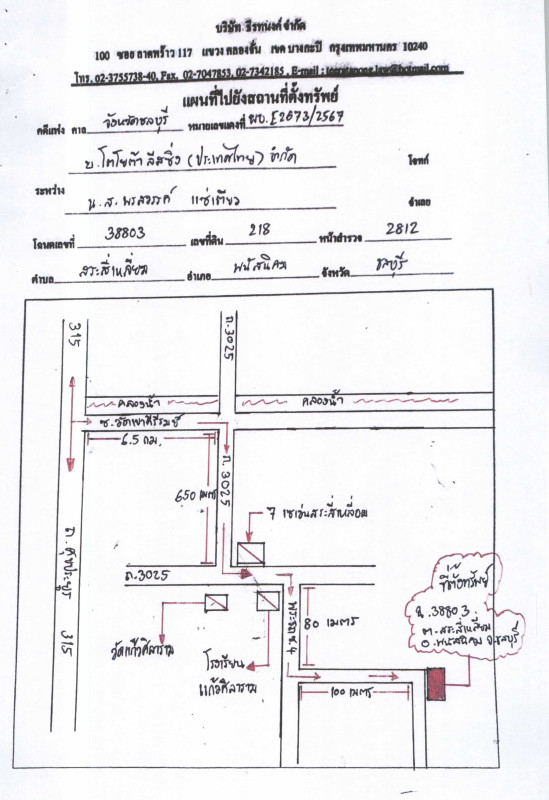 บริษัท ธีรทนงค์ จำกัด
100 ซอย ลาดพร้าว 117 แขวง คลองจั่น เขต บางกะปิ กรุงเทพมหานคร 10240
โทร. 02-3755738-40, Fax. 02-7047853, 02-7342185 , E-mail :
แผนที่ไปยังสถานที่ตั้งทรัพย์
คดีแพ่ง ศาล จังหวัดชลบุรี หมายเลขแดงที่ ผบ.E2673/2567
บ.โตโยต้า ลีสซิ่ง (ประเทศไทย) จำกัด โจทก์
ระหว่าง
น.ส. พรสวรรค์ แซ่เตียว จำเลย
โฉนดเลขที่ 38803 เลขที่ดิน 218 หน้าสำรวจ 2812
ตำบล สระสี่เหลี่ยม อำเภอ พนัสนิคม จังหวัด ชลบุรี
315
ถ.3025
คลองน้ำ
คลองน้ำ
6.5 กม.
ถ.3025
650 เมตร
7 เซเว่นสระสี่เหลี่ยม
ถ.3025
ถ. 315
วัดแก้วศิลาราม
โรงเรียน
แก้วศิลาราม
80 เมตร
100 เมตร
ที่ตั้งทรัพย์
ฉ.38803
ต.สระสี่เหลี่ยม
อ.พนัสนิคม จ.ชลบุรี